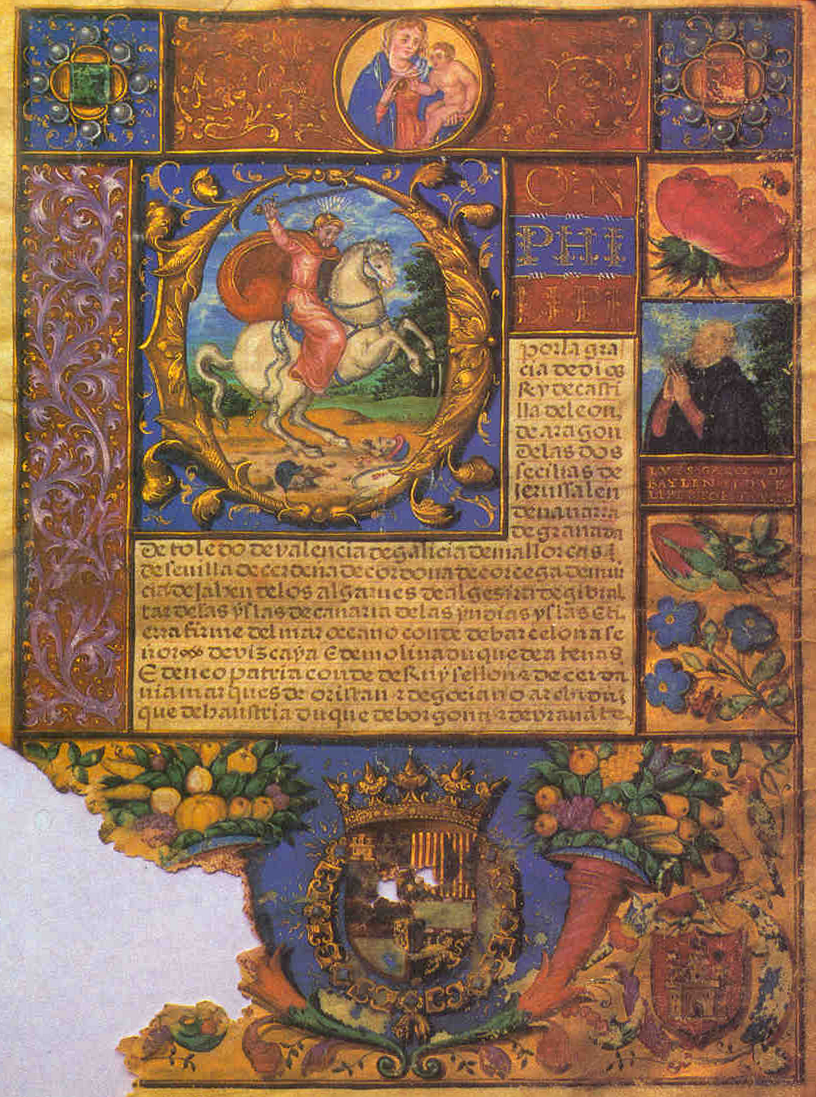 O:N
PHI
LIPI
por la gra
cia de dios
Rey de casti
lla de leon,
de aragon
de las dos
secilias de
Jerussalen
de navarra
de granada
de toledo de valencia de galicia de mallorcas
de sevilla de cerdeña de cordova de corcega de mur
cia de Jahen de los algarves de algesira de gibral
tar de las yslas de canaria de las yndias yslas E ti
erra firme del mar oceano conde de barcelona se
ñor de vizcaya E de molina duque de atenas
E de neopatria conde de Ruysellon de cerda
nia marques de oristan de gociano archidu
que de haustria duque de borgoña de bravante
LVYS GARCIA DE
BAYLEN